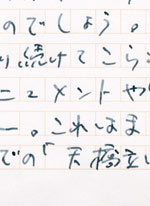 のでしょう。
り続けてこら
ニュメントや
ー。これはま
での「天橋立